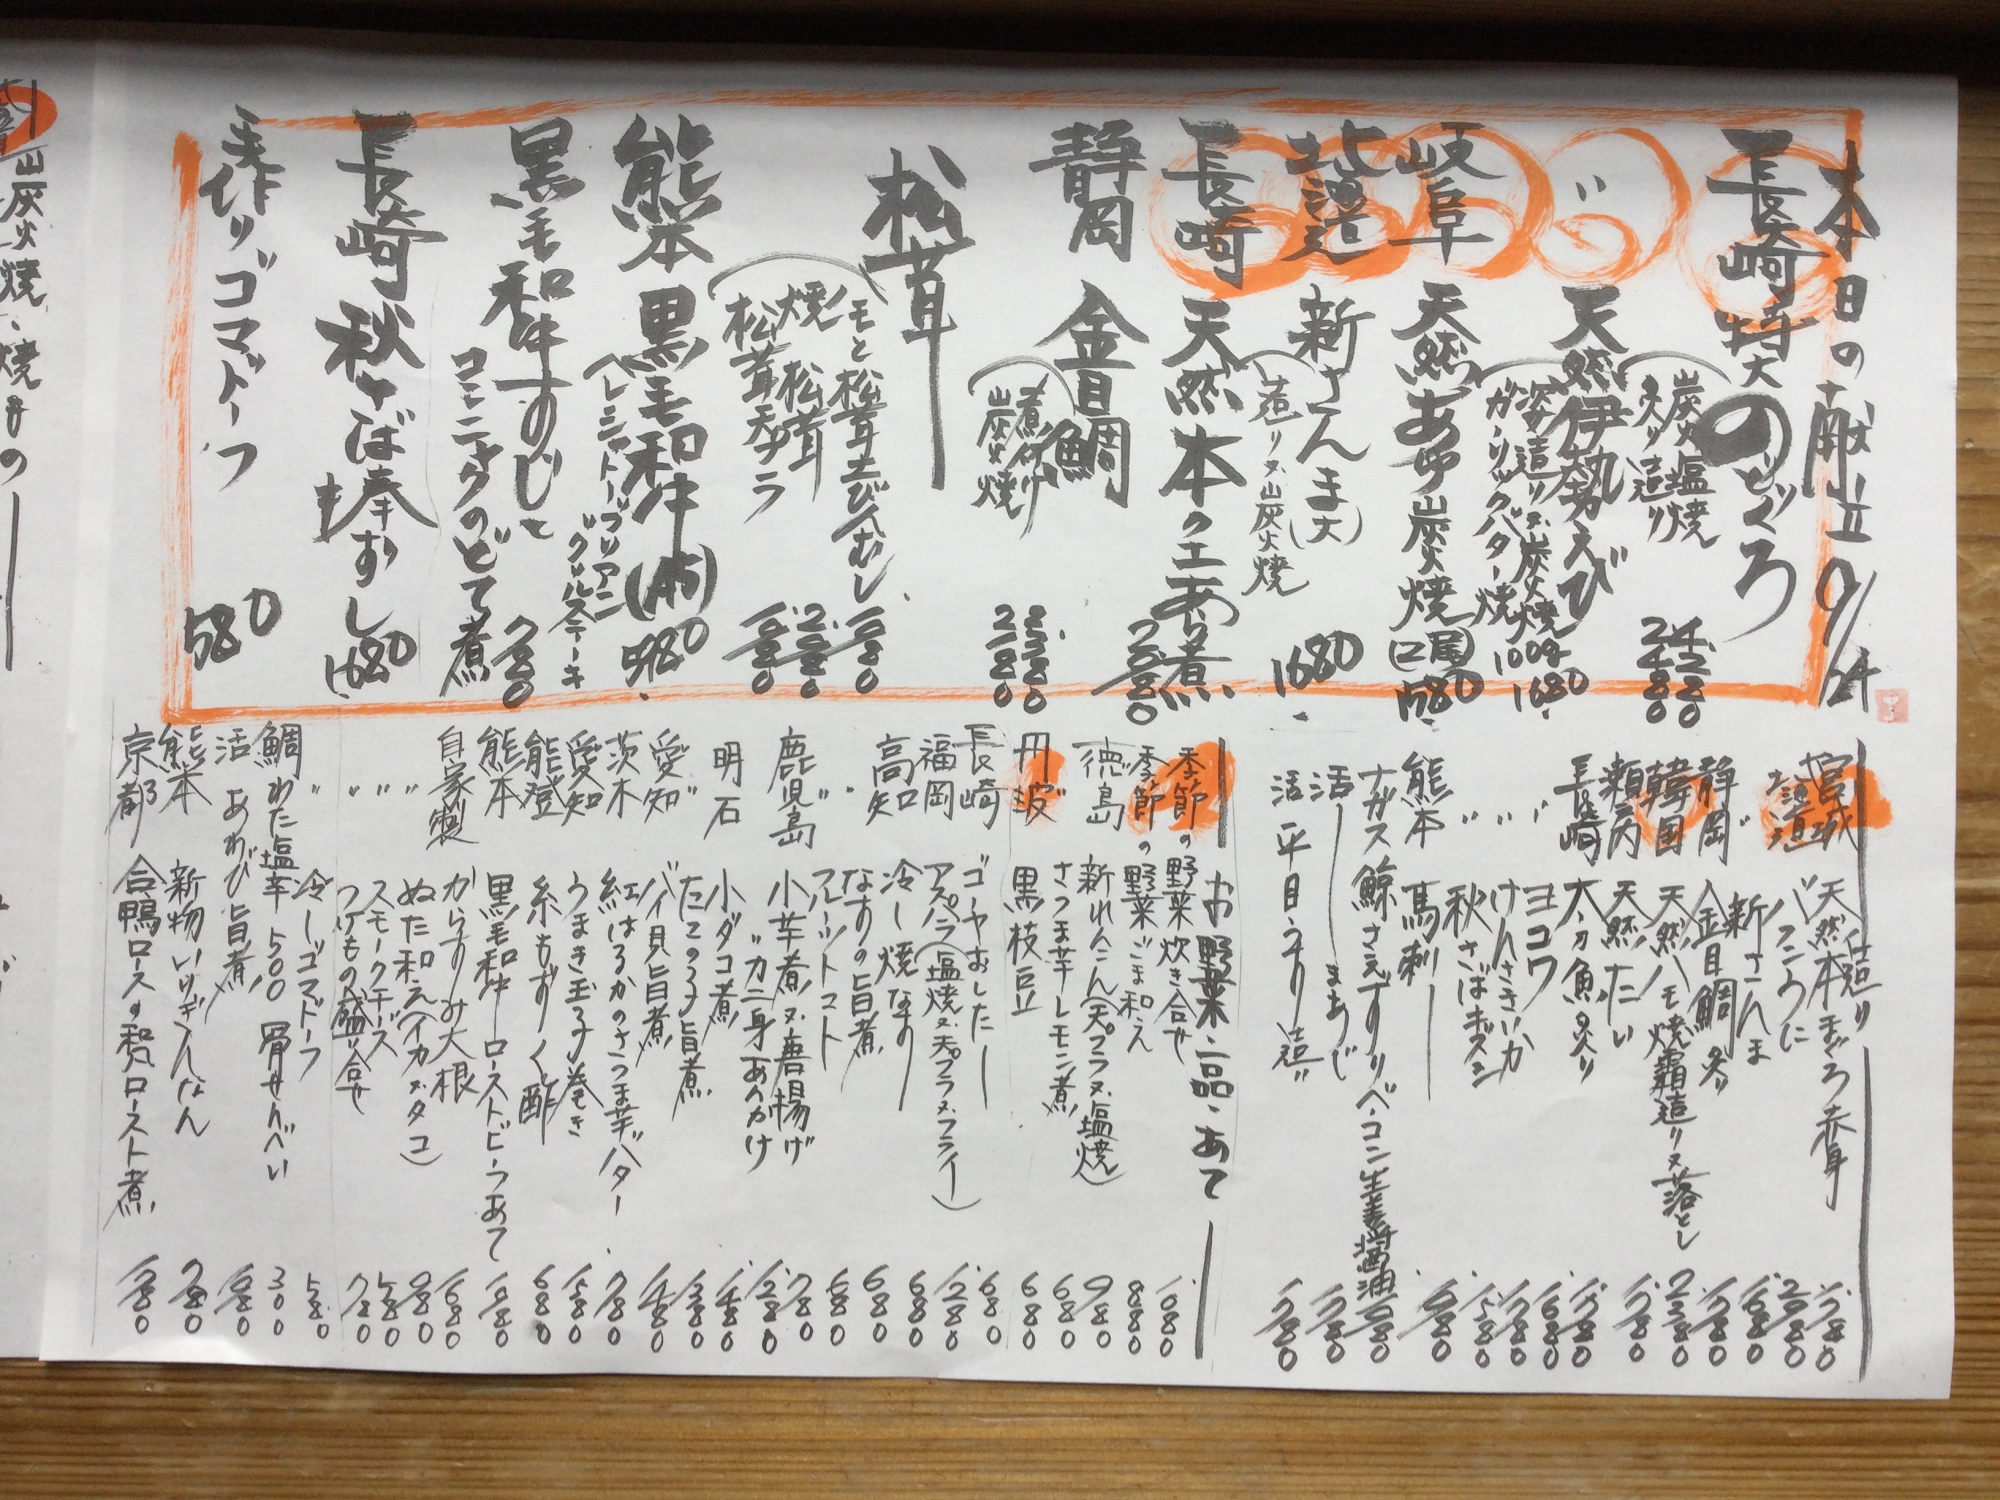 本日の献立 9/24
長崎 特大のどぐろ
炭火塩焼 4280
炙り造り 2480
〃 天然伊勢えび
姿造り又炭火焼 100g 1680
ガーリックバター焼
岐阜 天然あゆ炭火焼(二尾) 1580
北海道 新さんま(大)
造り又炭火焼 1680
長崎 天然本クエあら煮 2580
静岡 金目鯛
煮付け
炭火焼 2180
松茸
モと松茸土びんむし 1980
焼松茸
松茸天プラ
熊本 黒毛和牛(A5) 5980
ヘレシャトーブリアン
グリルステーキ
黒毛和牛すじと
コンニャクのどて煮 780
長崎 秋さば棒ずし 1680
手作りゴマドーフ 580
造り
宮城 天然本まぐろ赤身 1780
北海道 バフンうに 2980
〃 新さんま 1680
静岡 金目鯛炙り 1780
韓国 天然ハモ焼霜造り又落とし 2280
瀬戸内 天然たい 1780
長崎 太刀魚炙り 1780
〃 ヨコワ 1680
〃 けんさきいか 1780
〃 秋さばキズシ 1580
熊本 馬刺し 1980
ナガス鯨さえずりベーコン生姜醤油 1980
活 まあじ 1780
活 平目うす造り 1780
お野菜・一品・あて
季節の野菜炊き合せ 1080
季節の野菜ごま和え 880
徳島 新れんこん(天プラ又塩焼) 980
さつま芋レモン煮 680
丹波 黒枝豆 680
長崎 ゴーヤおしたし 680
福岡 アスパラ(塩焼又天プラ又フライ) 1280
高知 冷し焼なす 680
〃 なすの旨煮 680
〃 フルーツトマト 680
鹿児島 小芋煮又唐揚げ 780
〃 カニ身あんかけ 1280
明石 小ダコ煮 1480
〃 たこの子旨煮 1380
愛知 バイ貝旨煮 1480
茨木 紅はるかのさつま芋バター 780
愛知 うまき玉子巻き 1580
能登 糸もずく酢 680
熊本 黒毛和牛ローストビーフあて 1980
自家製 からすみ大根 1680
〃 ぬた和え(イカ又タコ) 980
〃 スモークチーズ 580
〃 つけもの盛り合せ 780
〃 冷しゴマドーフ 580
鯛わた塩辛 500 骨せんべい 300
活 あわび旨煮 1980
熊本 新物いりぎんなん 780
京都 合鴨ロースの和ロースト煮 1380
炭火焼、焼もの